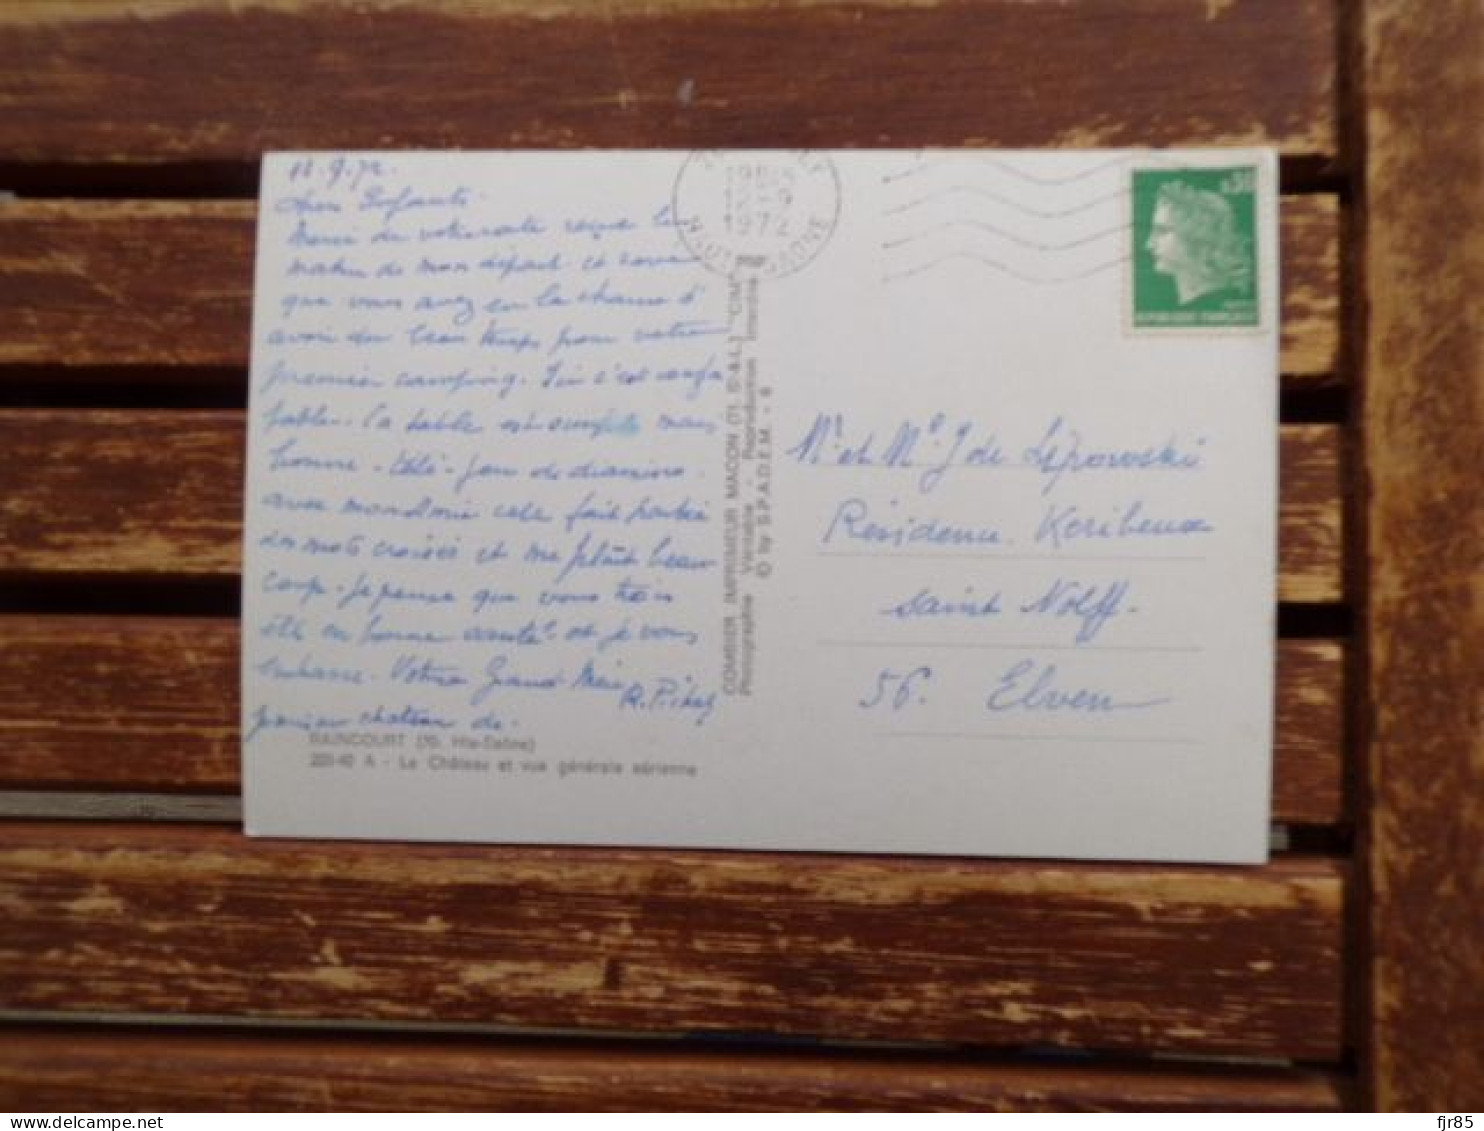 12.9.72.
Chers Enfants.
Merci de votre carte reçue le
matin de mon départ et
que vous avez eu la chance d'
avoir du beau temps pour votre
premier camping. Ici c'est confor
table. la table est simple mais
bonne. télé. jeu de
avec cela fait partie
des mots croisés et me plaît beau
coup. Je pense que vous
été en bonne santé et je vous
embrasse. Votre Grand Mère
château de.
RAINCOURT (70. Hte-Saône)
A - Le Château et vue générale aérienne
COMBIER IMPRIMEUR MACON (71. (S-&-L.) "CIM"
Photographie Véritable - Reproduction interdite
© by S.P.A.D.E.M. - 6
1972
HAUTE SAONE
0.30
REPUBLIQUE FRANÇAISE
Mr et Me J de Lépowski
Résidence Keribeux
Saint Nolff.
56. Elven
fjr85